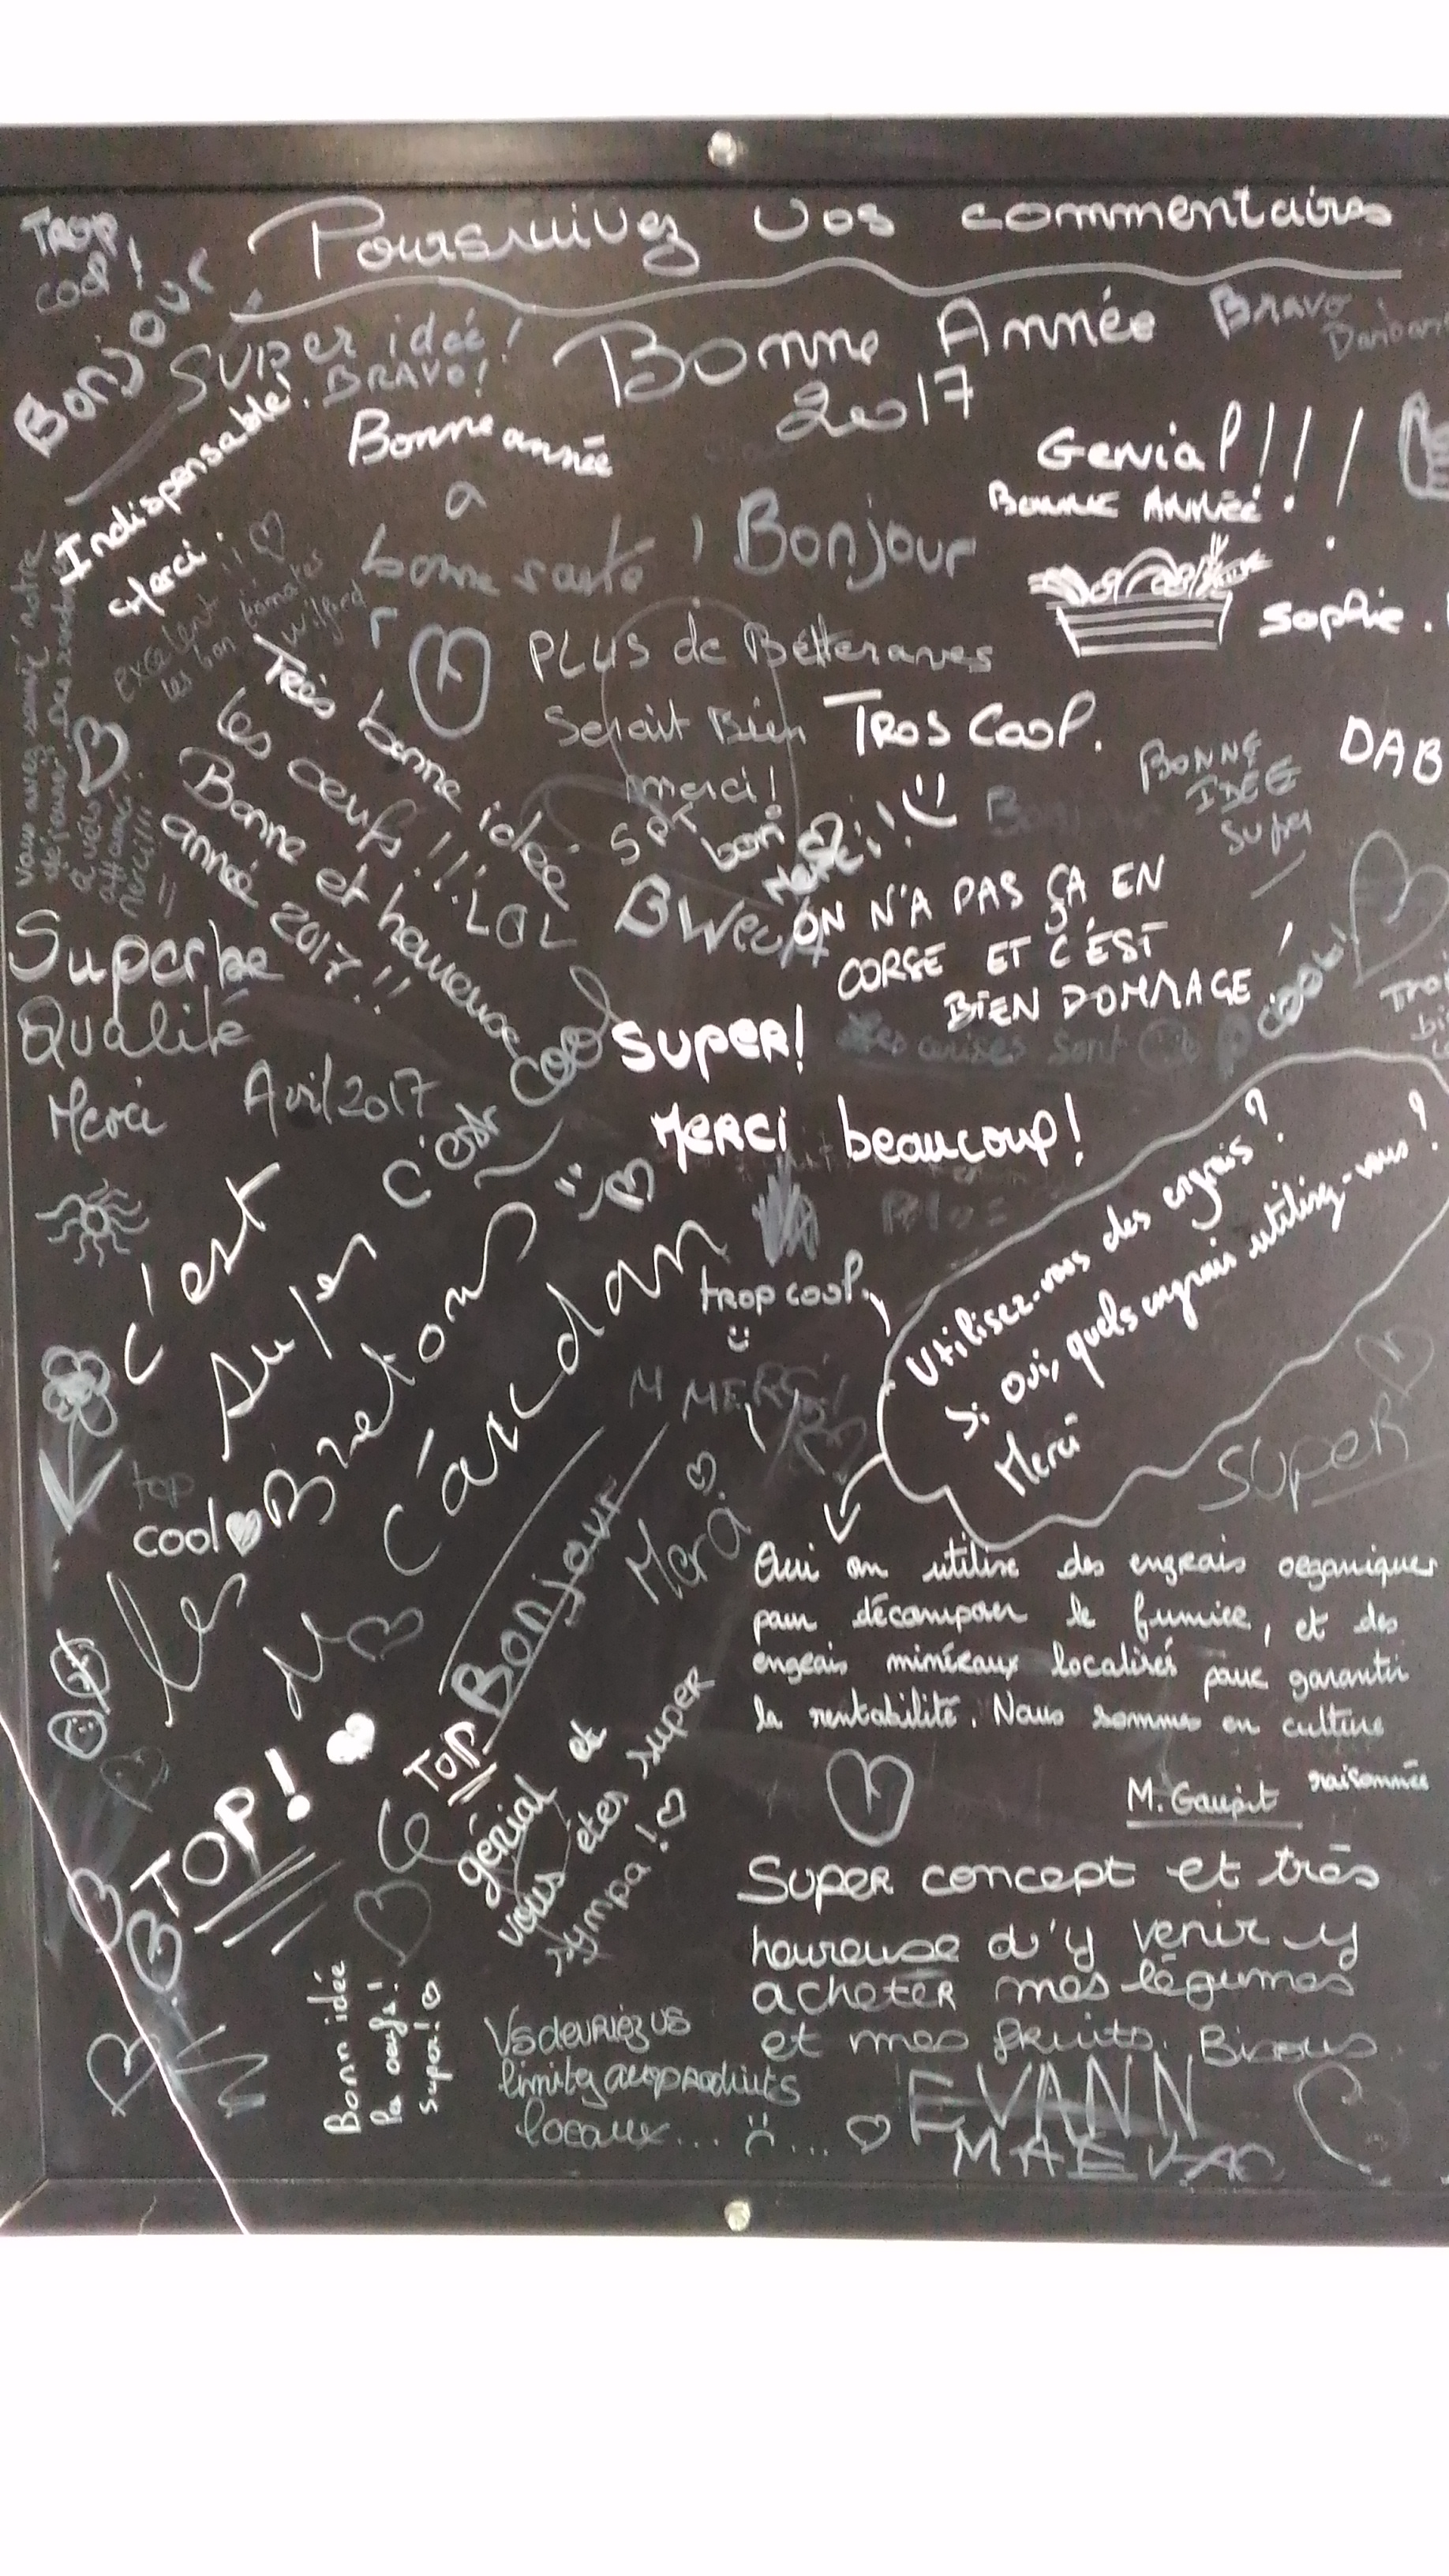 Poursuivez vos commentaires
TROP
cool !
Bonjour
SUPER idée !
BRAVO !
Bonne Année
2017
Bravo
Indispensable !
Merci !
Bonne année
a
bonne santé !
Bonjour
Genial !!!
BONNE ANNÉE !
Sophie.
excellent
les bon tomates
Wilfried
Très bonne idée
les oeufs !!! LOL
Bonne et heureuse
année 2017 !!
PLUS de Betteraves
Serait Bien
merci !
TROS COOL.
BONNE
IDÉE
Super
DAB
bon
Merci !!
ON N'A PAS ÇA EN
CORSE ET C'EST
BIEN DOMMAGE !
cool
Superbe
Qualité
Merci
Avril 2017
c'est cool
SUPER!
les cerises sont
MERCI beaucoup!
C'est
super
les Bretons
C'arcdan
trop cool
top
cool
MERCI
Utilisez-vous des engrais ?
Si oui, quels engrais utilisez-vous ?
Merci
SUPER
Oui on utilise des engrais organiques
pour décomposer le fumier, et des
engrais minéraux localisés pour garantir
la rentabilité. Nous sommes en culture
raisonnée
M. Gaupit
Bonjour
Merci
TOP
TOP!
génial et
vous êtes super
sympa !
Super concept et très
heureuse d'y venir y
acheter mes légumes
et mes fruits. Bisous
Bonn idée
les oeufs !
super !
Vs devriez vs
limitez aux produits
locaux...
EVANN